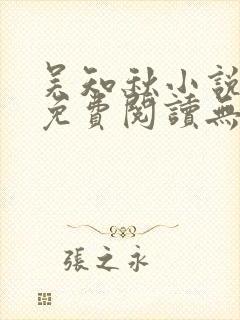 吴知秋小說
免費閱讀無
張之永